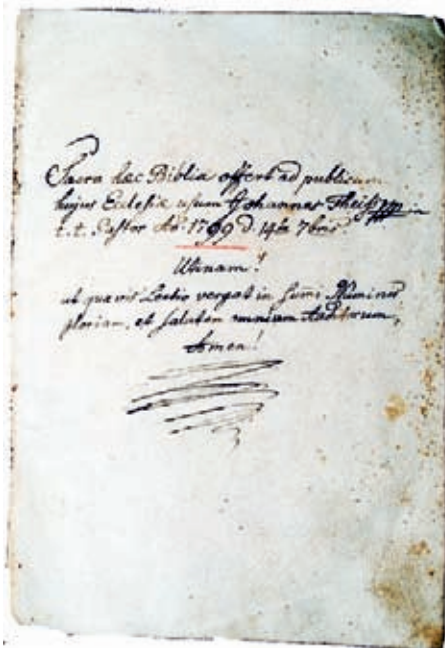 Sacra hec Biblia offert ad publicum
hujus Eclesie usum Johannes Theiss
t. t. Pastor Ao. 1799 d. 14ta 7bris
Utinam!
ut quevis Lectio vergat in Sumi Numinis
gloriam, et salutem omnium Auditorum,
Amen!